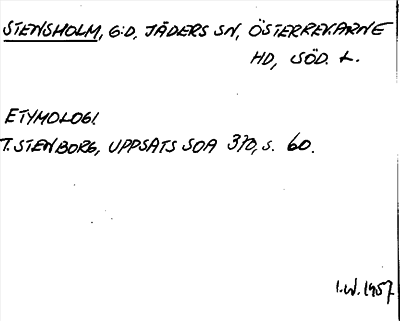 STENSHOLM, G:D, JÄDERS SN, ÖSTERREKARNE
HD, SÖD. L.
ETYMOLOGI.
T. STENBORG, UPPSATS SOA 370, S. 60.
I.W. 1957